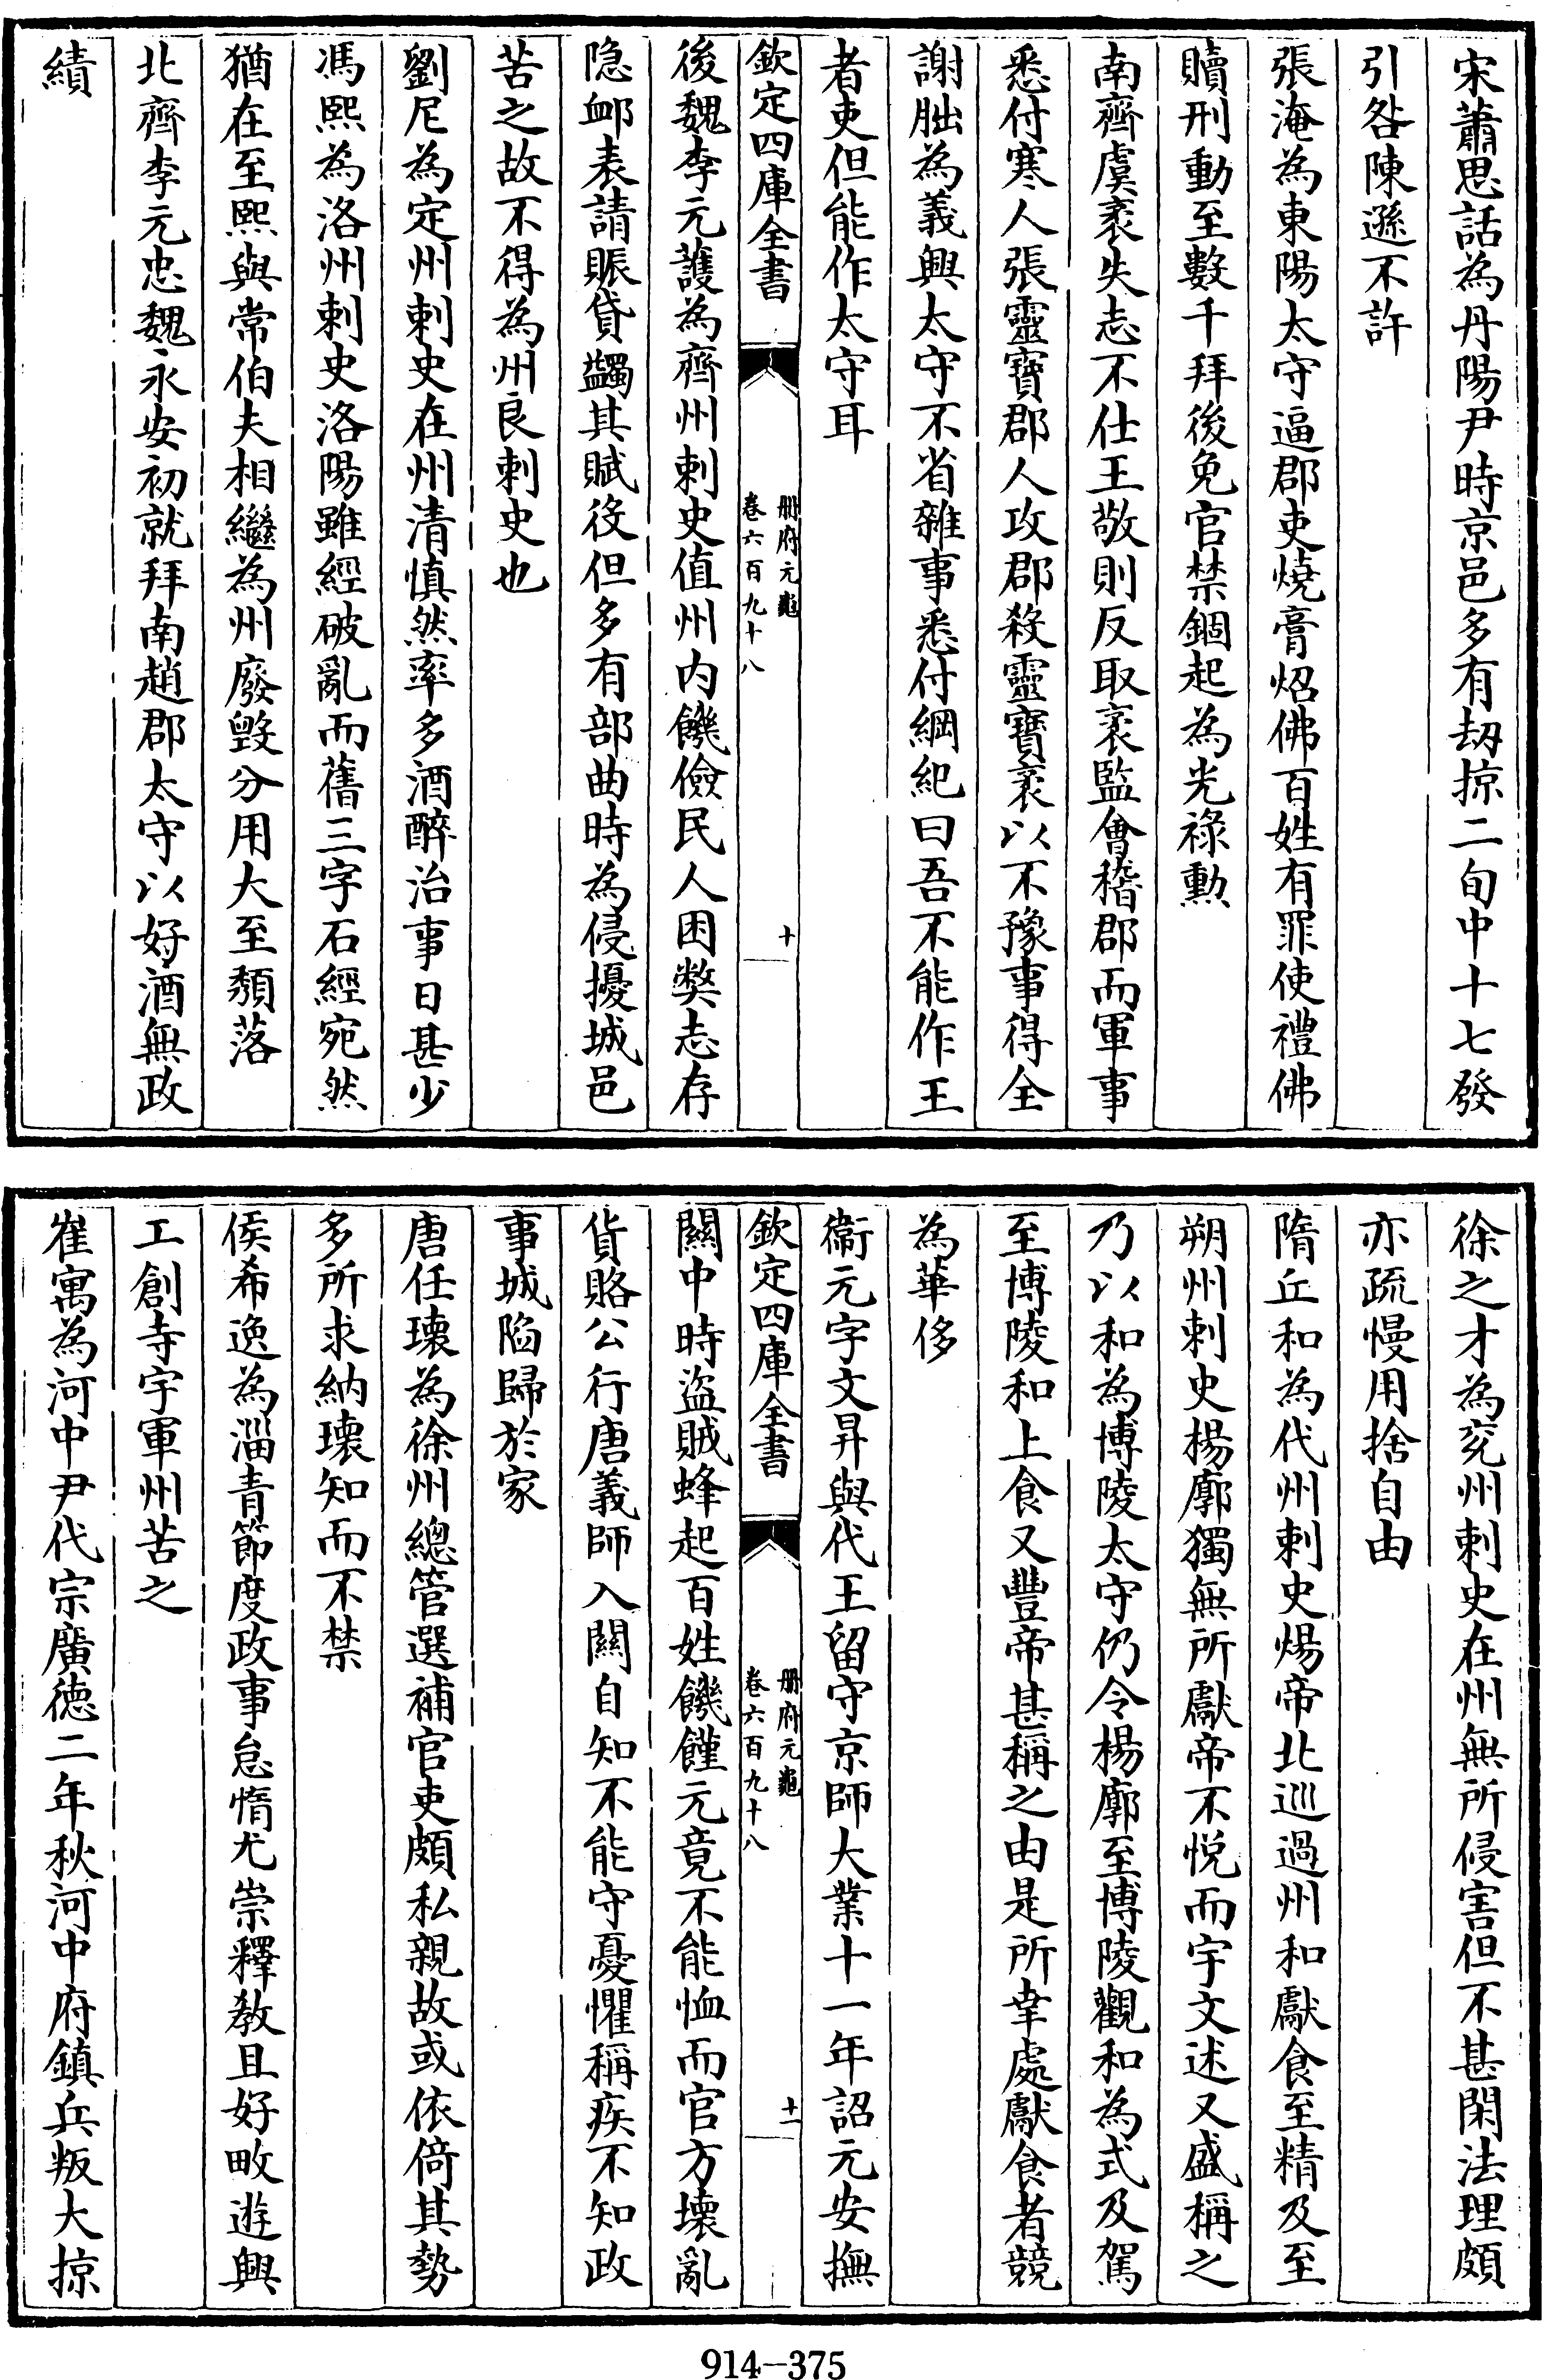 宋蕭思話為丹陽尹時京邑多有劫掠二旬中十七發
引咎陳遜不許
張淹為東陽太守逼郡吏燒膏炤佛百姓有罪使禮佛
贖刑動至數千拜後免官禁錮起為光祿勲
南齊虞袤失志不仕王敬則反取袤監會稽郡而軍事
悉付寒人張靈寶郡人攻郡殺靈寶袤以不豫事得全
謝朏為義興太守不省雜事悉付綱紀曰吾不能作王
者吏但能作太守耳
欽定四庫全書
冊府元龜
卷六百九十八
十
後魏李元護為齊州刺史值州内饑儉民人困獘志存
隐衈表請賑貸蠲其賦役但多有部曲時為侵擾城邑
苦之故不得為州良刺史也
劉尼為定州刺史在州清慎然率多酒醉治事日甚少
馮熙為洛州刺史洛陽雖經破亂而舊三字石經宛然
猶在至熙與常伯夫相繼為州廢毁分用大至頽落
北齊李元忠魏永安初就拜南趙郡太守以好酒無政
績
徐之才為兖州刺史在州無所侵害但不甚閑法理頗
亦疏慢用捨自由
隋丘和為代州刺史煬帝北巡過州和獻食至精及至
朔州刺史楊廓獨無所獻帝不悦而宇文述又盛稱之
乃以和為博陵太守仍令楊廓至博陵觀和為式及駕
至博陵和上食又豐帝甚稱之由是所幸處獻食者競
為華侈
衞元字文昇與代王留守京師大業十一年詔元安撫
欽定四庫全書
冊府元龜
卷六百九十八
十一
關中時盜賊蜂起百姓饑饉元竟不能恤而官方壊亂
貨賂公行唐義師入關自知不能守憂懼稱疾不知政
事城陷歸於家
唐任瓌為徐州總管選補官吏頗私親故或依倚其勢
多所求納瓌知而不禁
侯希逸為淄青節度政事怠惰尤崇釋教且好畋遊興
工創寺宇軍州苦之
崔寓為河中尹代宗廣徳二年秋河中府鎮兵叛大掠
914-375